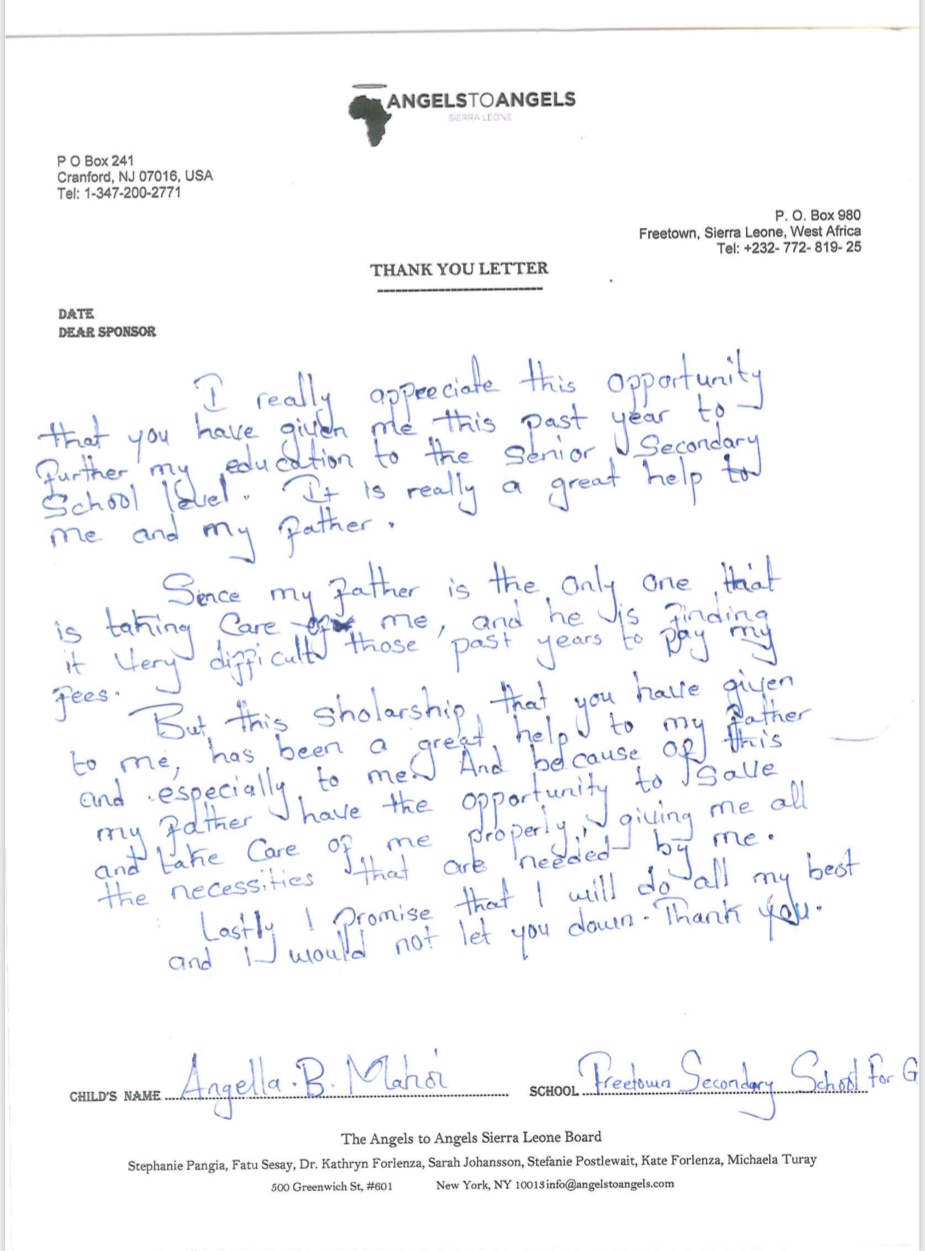 ANGELSTOANGELS
SIERRA LEONE
P O Box 241
Cranford, NJ 07016, USA
Tel: 1-347-200-2771
P. O. Box 980
Freetown, Sierra Leone, West Africa
Tel: +232- 772- 819- 25
THANK YOU LETTER
DATE
DEAR SPONSOR
I really appreciate this opportunity
that you have given me this past year to
further my education to the Senior Secondary
School level. It is really a great help to
me and my father.
Since my father is the only one that
is taking Care of me, and he is finding
it very difficult those past years to pay my
fees.
But this sholarship that you have given
to me, has been a great help to my father
and especially to me. And because of this
my father have the opportunity to save
and take Care of me properly, giving me all
the necessities that are needed by me.
Lastly I promise that I will do all my best
and I would not let you down. Thank you.
CHILD'S NAME Angella.B. Mahoi
SCHOOL Freetown Secondary School For G
The Angels to Angels Sierra Leone Board
Stephanie Pangia, Fatu Sesay, Dr. Kathryn Forlenza, Sarah Johansson, Stefanie Postlewait, Kate Forlenza, Michaela Turay
500 Greenwich St, #601 New York, NY 10013 info@angelstoangels.com